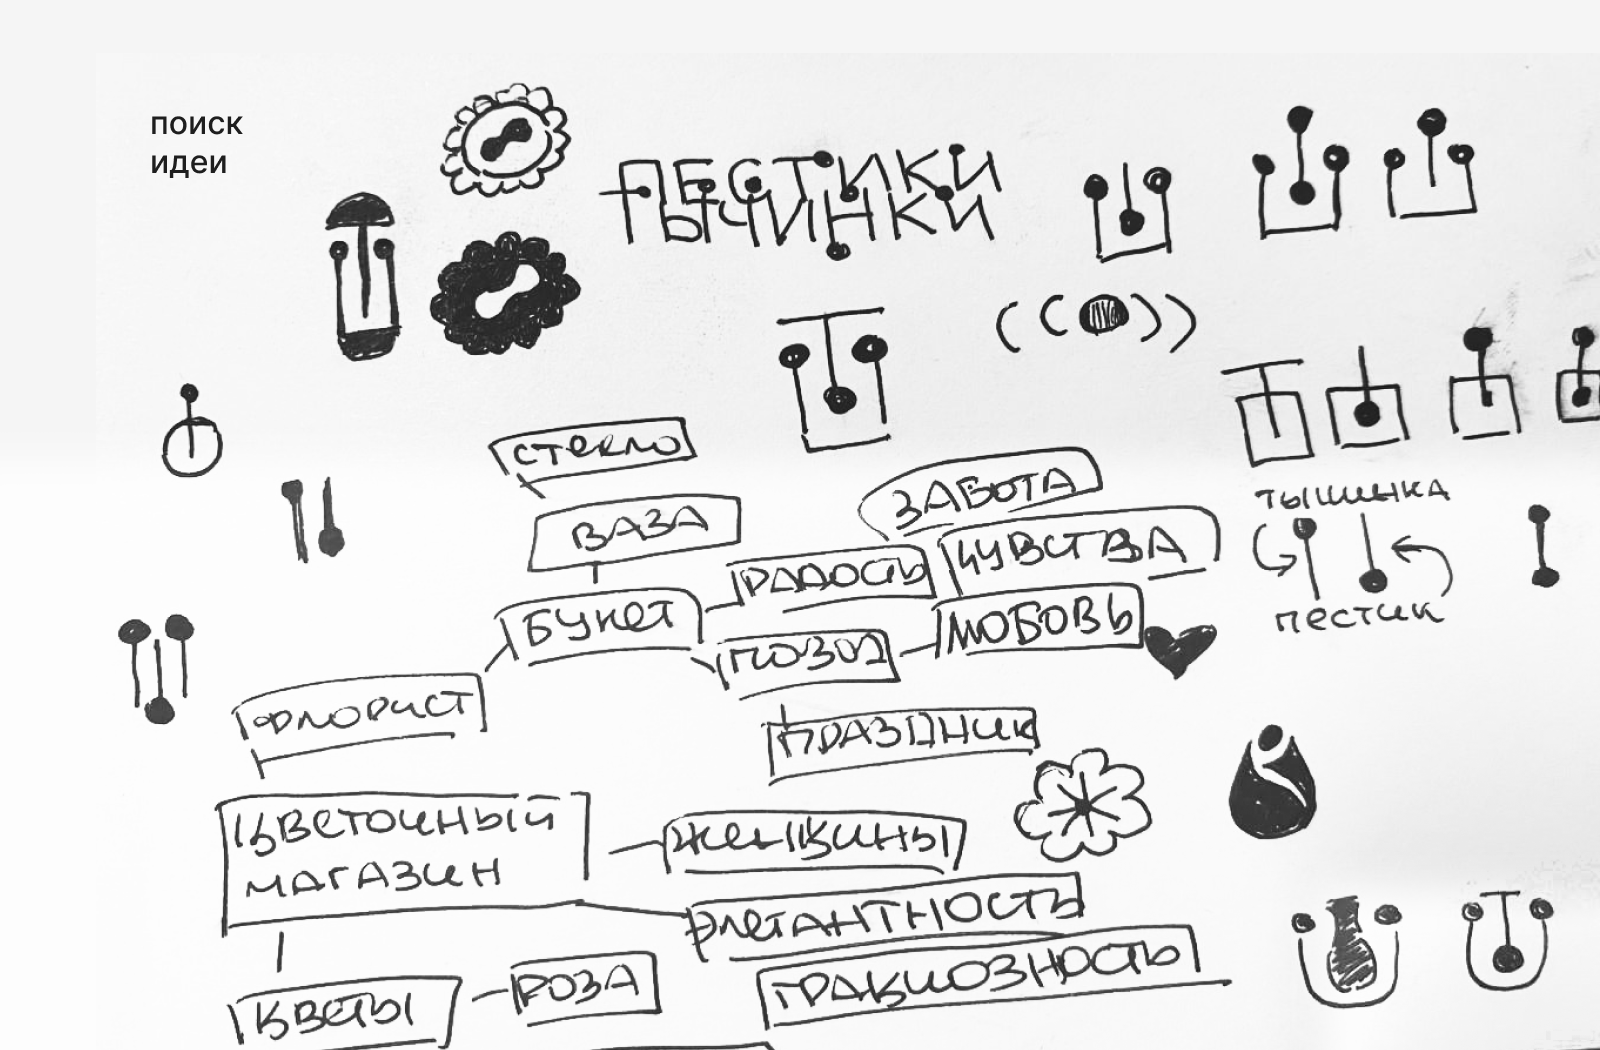 поиск
идеи
ПЕСТИКИ
ТЫЧИНКИ
стекло
ВАЗА
ЗАБОТА
ЧУВСТВА
РАДОСТЬ
БУКЕТ
ЛЮБОВЬ
ПОВОД
ФЛОРИСТ
ПРАЗДНИК
тычинка
пестик
ЦВЕТОЧНЫЙ
МАГАЗИН
ЖЕНЩИНЫ
ЭЛЕГАНТНОСТЬ
ГРАЦИОЗНОСТЬ
ЦВЕТЫ
РОЗА